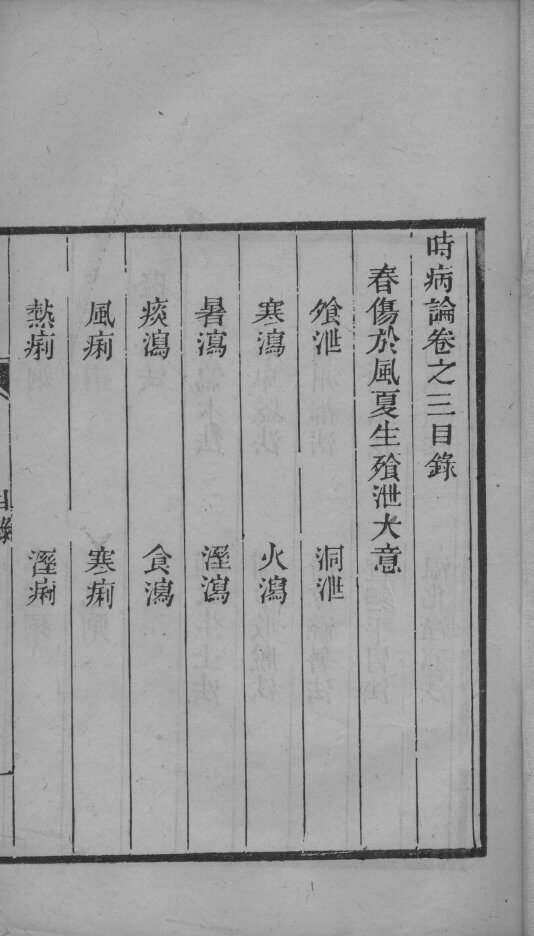 時病論卷之三目錄
春傷於風夏生飱泄大意
飱泄 洞泄
寒瀉 火瀉
暑瀉 溼瀉
痰瀉 食瀉
風痢 寒痢
熱痢 溼痢
目錄